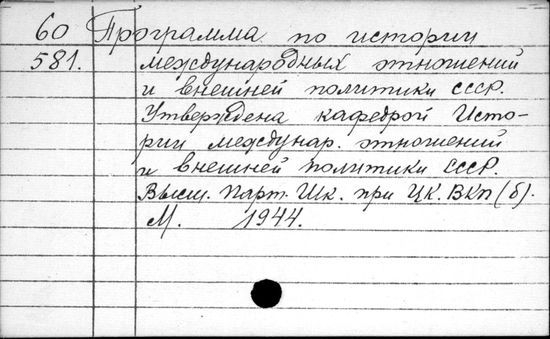 60 Программа по истории
581. международных отношений
и внешней политики СССР.
Утверждена кафедрой Исто-
рии междунар. отношений
и внешней политики СССР.
Высш. Парт. Шк. при ЦК. ВКП(б).
М. 1944.